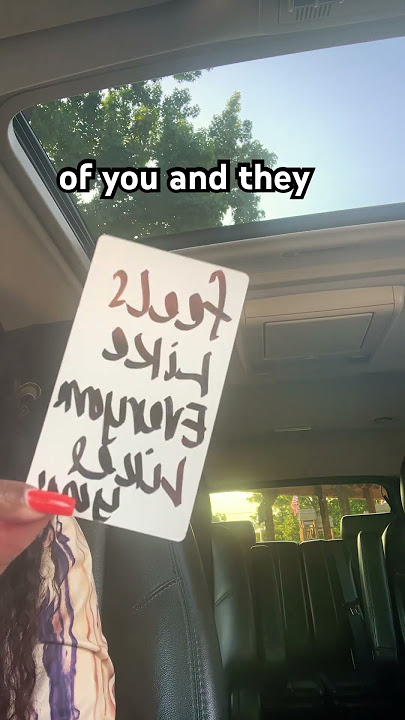 of you and they
feels
Like
Everyone
Likes
you